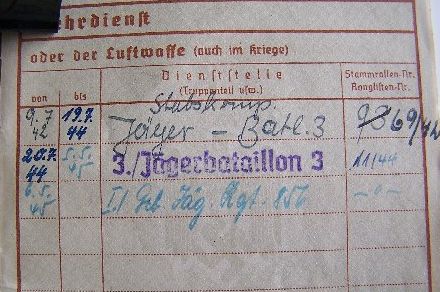 ehrdienst
oder der Luftwaffe (auch im Kriege)
von bis Dienststelle Stammrollen-Nr.
(Truppenteil usw.) Ranglisten-Nr.
Stabskomp.
9.7 42 19.7. 44 Jäger – Batl. 3 69/42
20.7. 44 5.5. 45 3./Jägerbataillon 3 11/44
6.5. 45 II Geb. Jäg. Rgt. 856 -"-